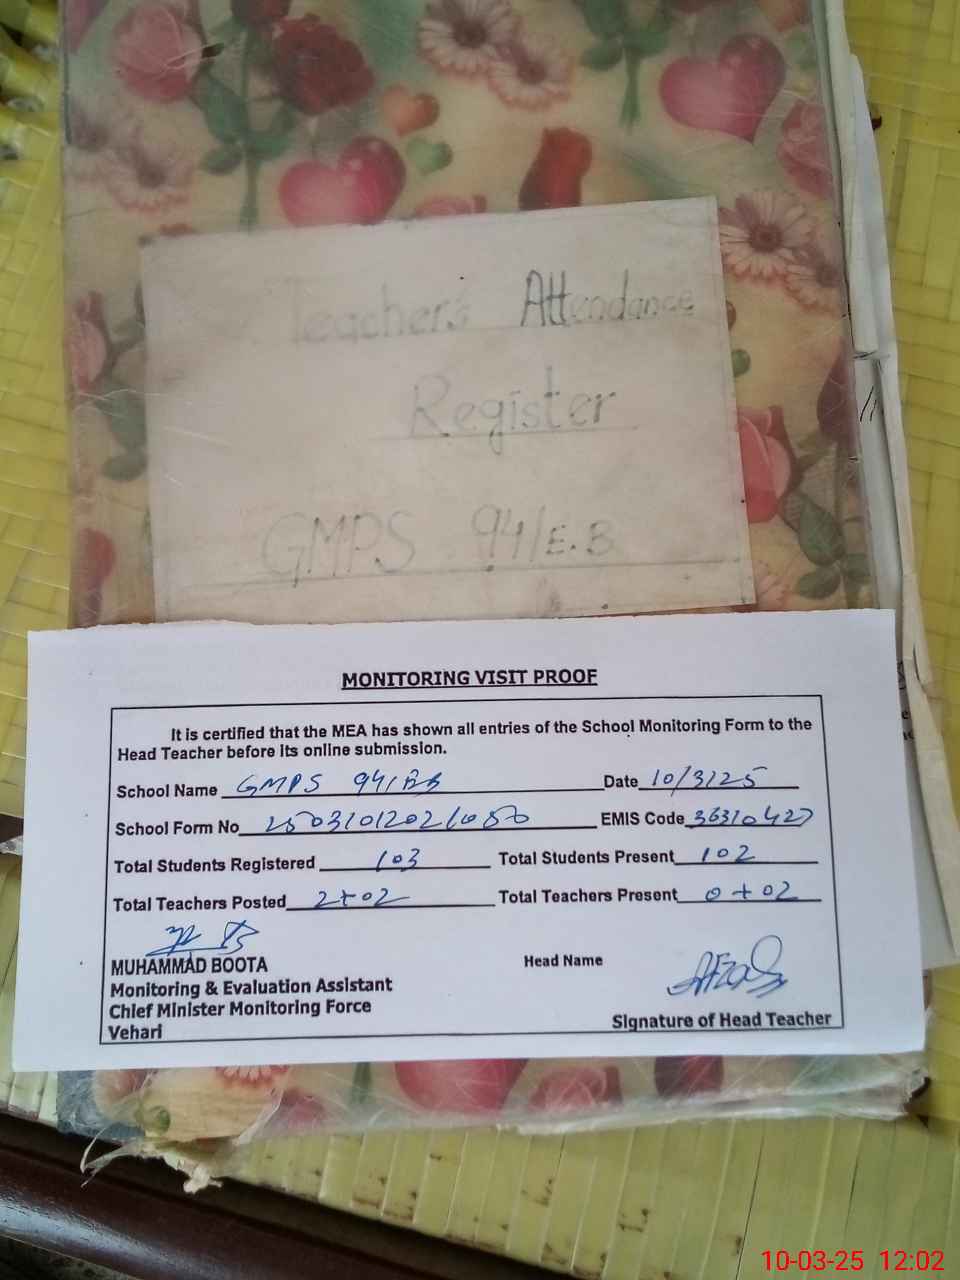 Teacher's Attendance
Register
GMPS 94/E.B
MONITORING VISIT PROOF
It is certified that the MEA has shown all entries of the School Monitoring Form to the
Head Teacher before its online submission.
School Name GMPS 94/EB Date 10/3/25
School Form No EMIS Code 36310427
Total Students Registered 103 Total Students Present 102
Total Teachers Posted 2+02 Total Teachers Present 0+02
MUHAMMAD BOOTA Head Name
Monitoring & Evaluation Assistant
Chief Minister Monitoring Force
Vehari Signature of Head Teacher
10-03-25 12:02